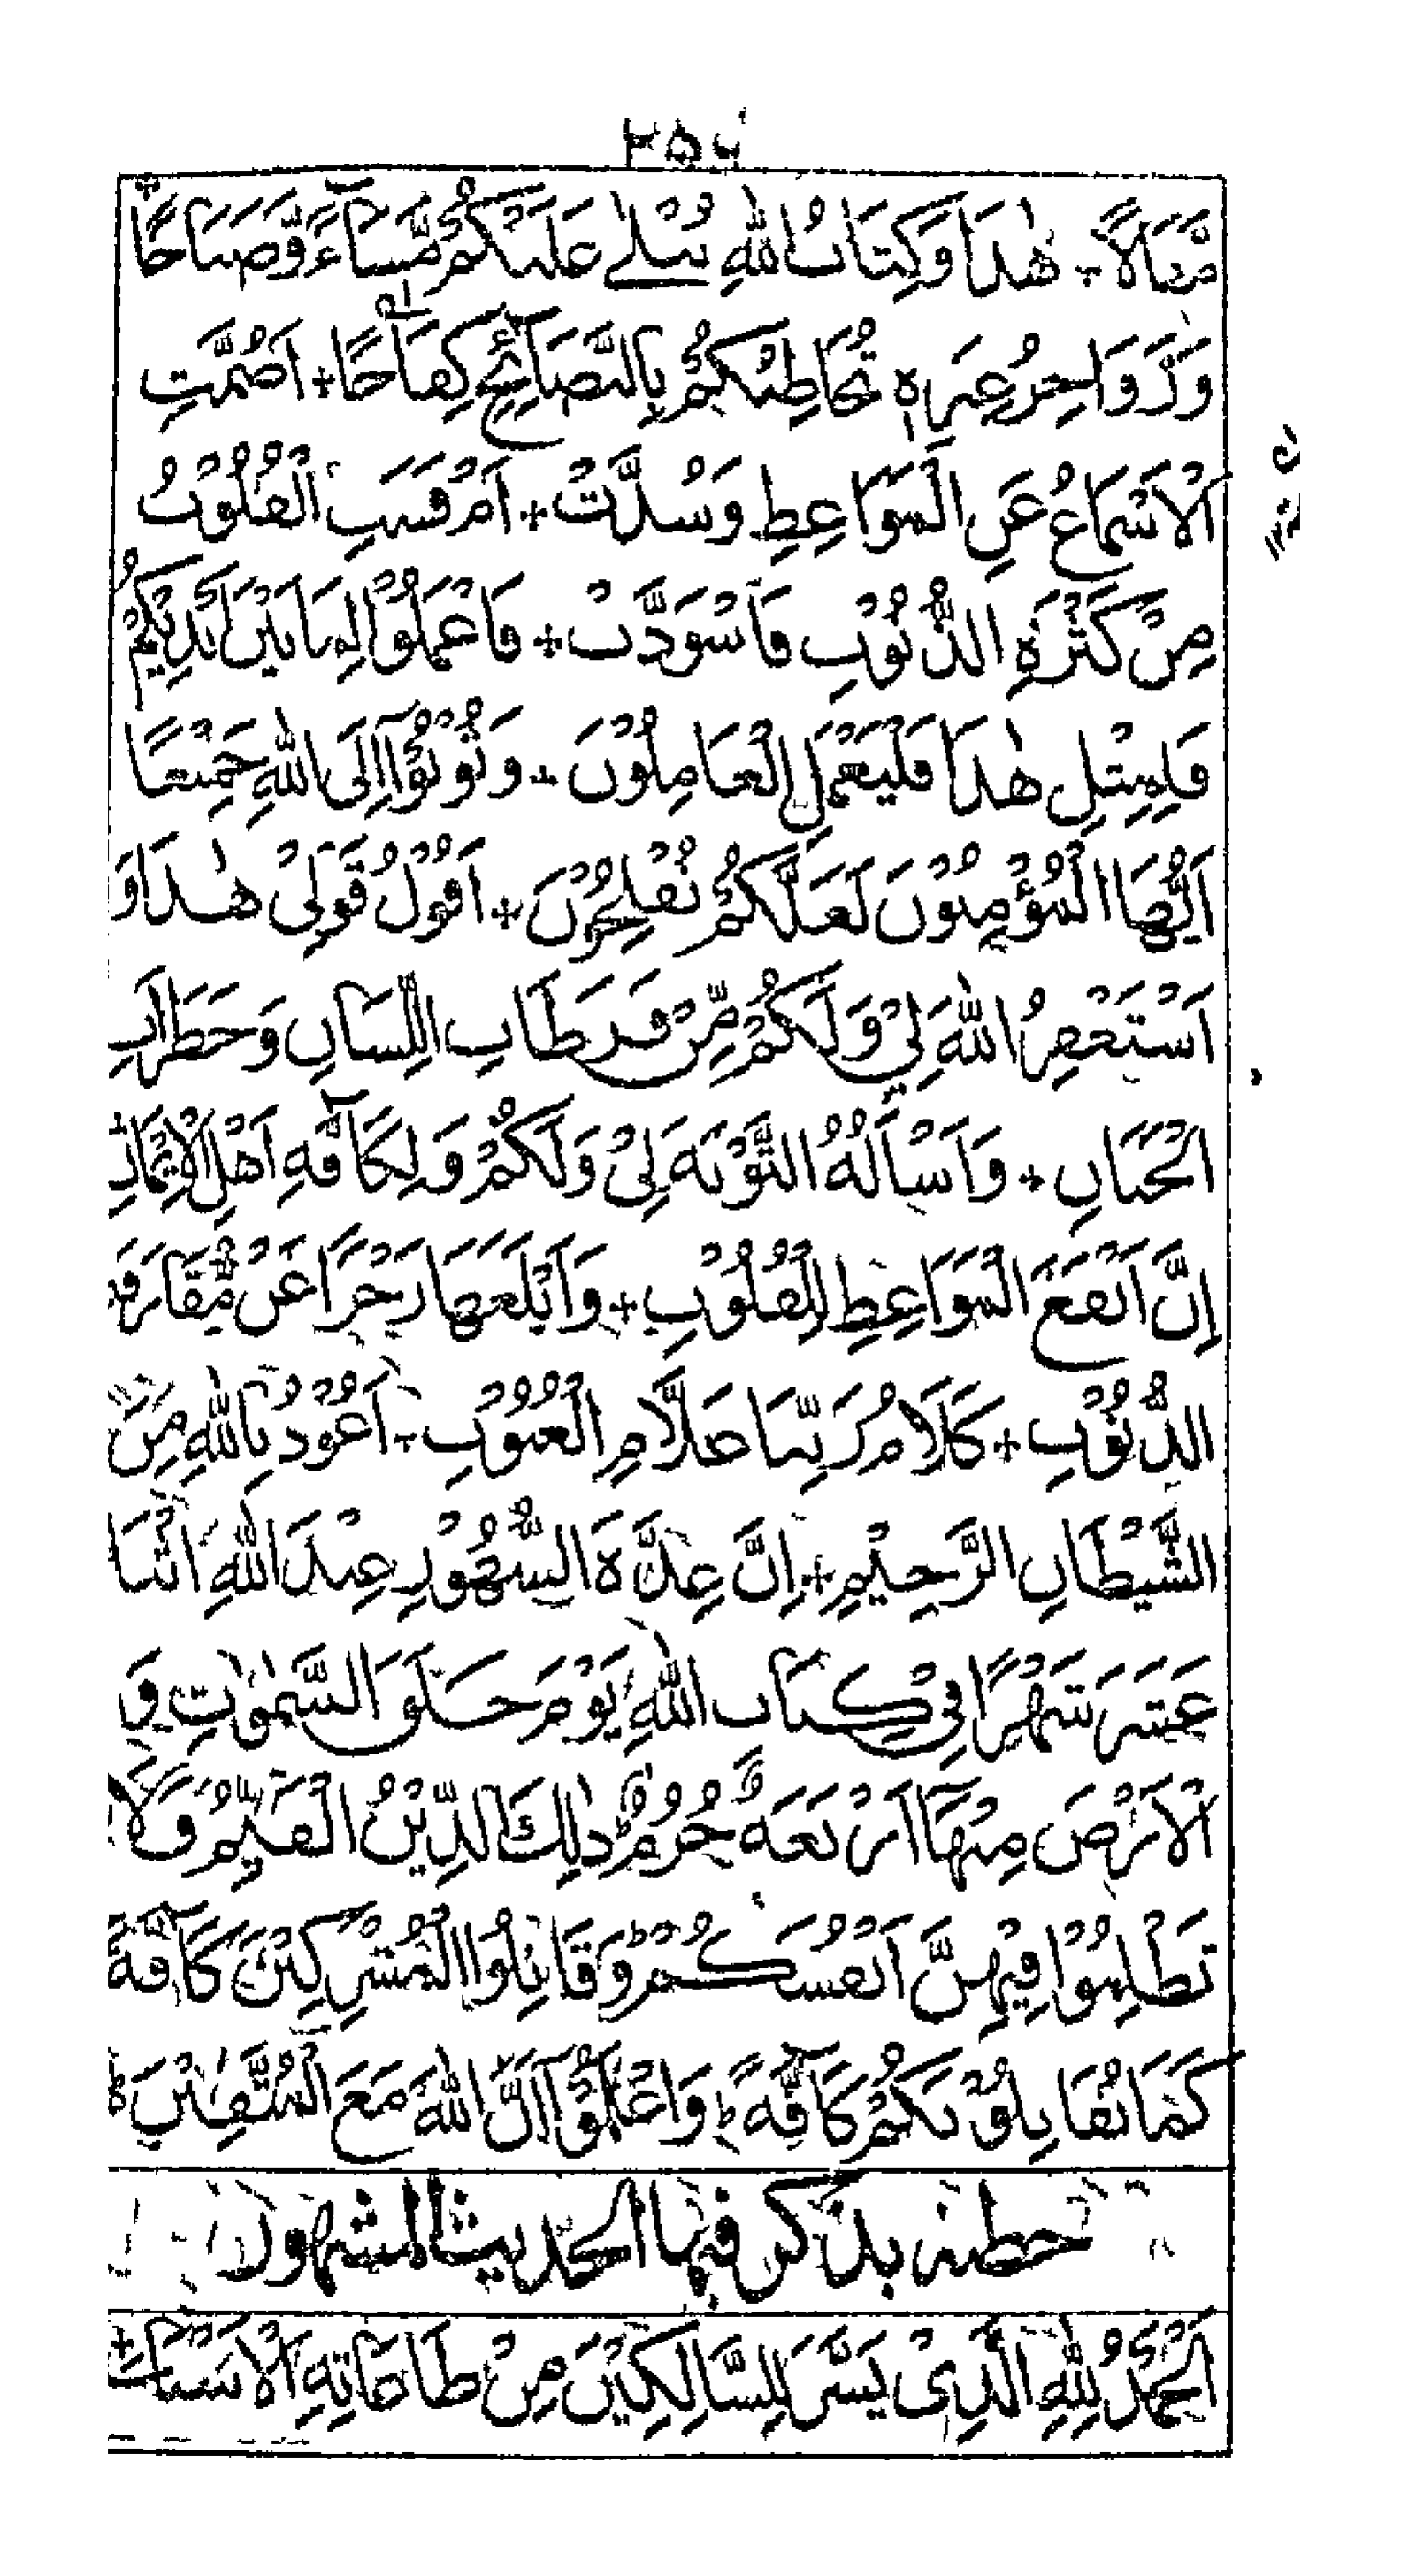 ٢٥٦
مَّيَالًا + هٰذَا وَكِتَابُ اللّٰهِ يُتْلٰى عَلَيْكُمْ مَّسَآءً وَّصَبَاحًا
وَزَوَاجِرُ عِبَرِهٖ تُخَاطِبُكُمْ بِالنَّصَآئِحِ كِفَاحًا + اَصُمَّتِ
الْاَسْمَاعُ عَنِ الْمَوَاعِظِ وَسُدَّتْ + اَمْ قَسَتِ الْقُلُوْبُ
مِنْ كَثْرَةِ الذُّنُوْبِ فَاسْوَدَّتْ + فَاعْمَلُوْا لِمَا بَيْنَ اَيْدِيْكُمْ
فَلِمِثْلِ هٰذَا فَلْيَعْمَلِ الْعَامِلُوْنَ + وَتُوْبُوْآ اِلَى اللّٰهِ جَمِيْعًا
اَيُّهَا الْمُؤْمِنُوْنَ لَعَلَّكُمْ تُفْلِحُوْنَ + اَقُوْلُ قَوْلِيْ هٰذَا وَ
اَسْتَغْفِرُ اللّٰهَ لِيْ وَلَكُمْ مِّنْ فَرَطَاتِ اللِّسَانِ وَخَطَرَاتِ
الْجَنَانِ + وَاَسْاَلُهُ التَّوْبَةَ لِيْ وَلَكُمْ وَلِكَآفَّةِ اَهْلِ الْاِيْمَانِ
اِنَّ اَنْفَعَ الْمَوَاعِظِ لِلْقُلُوْبِ + وَاَبْلَغَهَا زَجْرًا عَنْ مُّقَارَفَةِ
الذُّنُوْبِ + كَلَامُ رَبِّنَا عَلَّامِ الْغُيُوْبِ + اَعُوْذُ بِاللّٰهِ مِنَ
الشَّيْطَانِ الرَّجِيْمِ + اِنَّ عِدَّةَ الشُّهُوْرِ عِنْدَ اللّٰهِ اثْنَا
عَشَرَ شَهْرًا فِيْ كِتَابِ اللّٰهِ يَوْمَ خَلَقَ السَّمٰوٰتِ وَ
الْاَرْضَ مِنْهَآ اَرْبَعَةٌ حُرُمٌ ذٰلِكَ الدِّيْنُ الْقَيِّمُ فَلَا
تَظْلِمُوْا فِيْهِنَّ اَنْفُسَكُمْ وَقَاتِلُوا الْمُشْرِكِيْنَ كَآفَّةً
كَمَا يُقَاتِلُوْنَكُمْ كَآفَّةً ط وَاعْلَمُوْٓا اَنَّ اللّٰهَ مَعَ الْمُتَّقِيْنَ ط
خطبة يذكر فيها الحديث المشهور
اَلْحَمْدُ لِلّٰهِ الَّذِيْ يَسَّرَ لِلسَّالِكِيْنَ مِنْ طَاعَاتِهِ الْاَسْبَابَ +